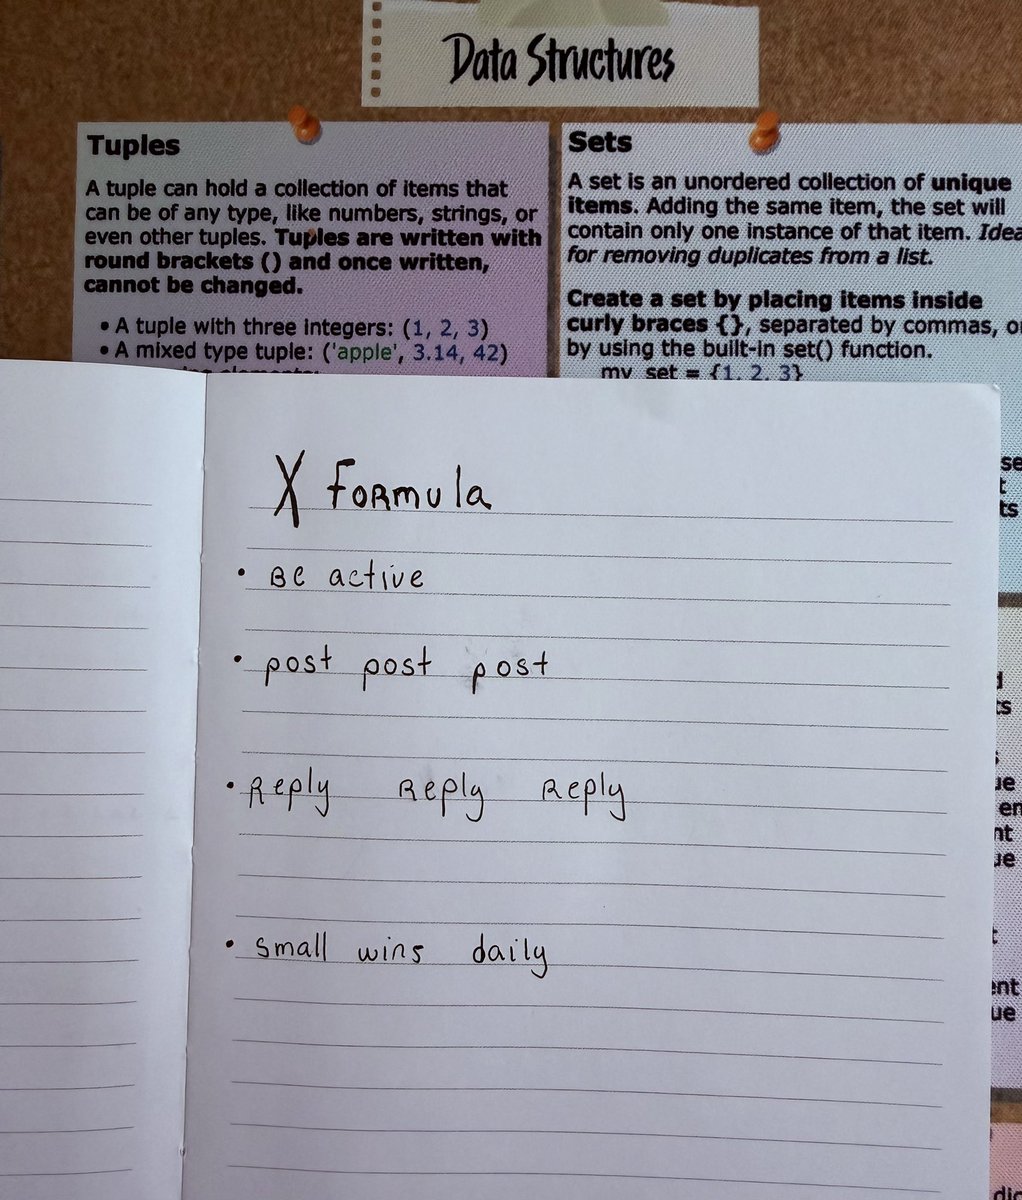 Data Structures
Tuples
A tuple can hold a collection of items that
can be of any type, like numbers, strings, or
even other tuples. Tuples are written with
round brackets () and once written,
cannot be changed.
• A tuple with three integers: (1, 2, 3)
• A mixed type tuple: ('apple', 3.14, 42)
Sets
A set is an unordered collection of unique
items. Adding the same item, the set will
contain only one instance of that item. Idea
for removing duplicates from a list.
Create a set by placing items inside
curly braces {}, separated by commas, o
by using the built-in set() function.
my_set = {1, 2, 3}
X Formula
• Be active
• post post post
• Reply Reply Reply
• small wins daily